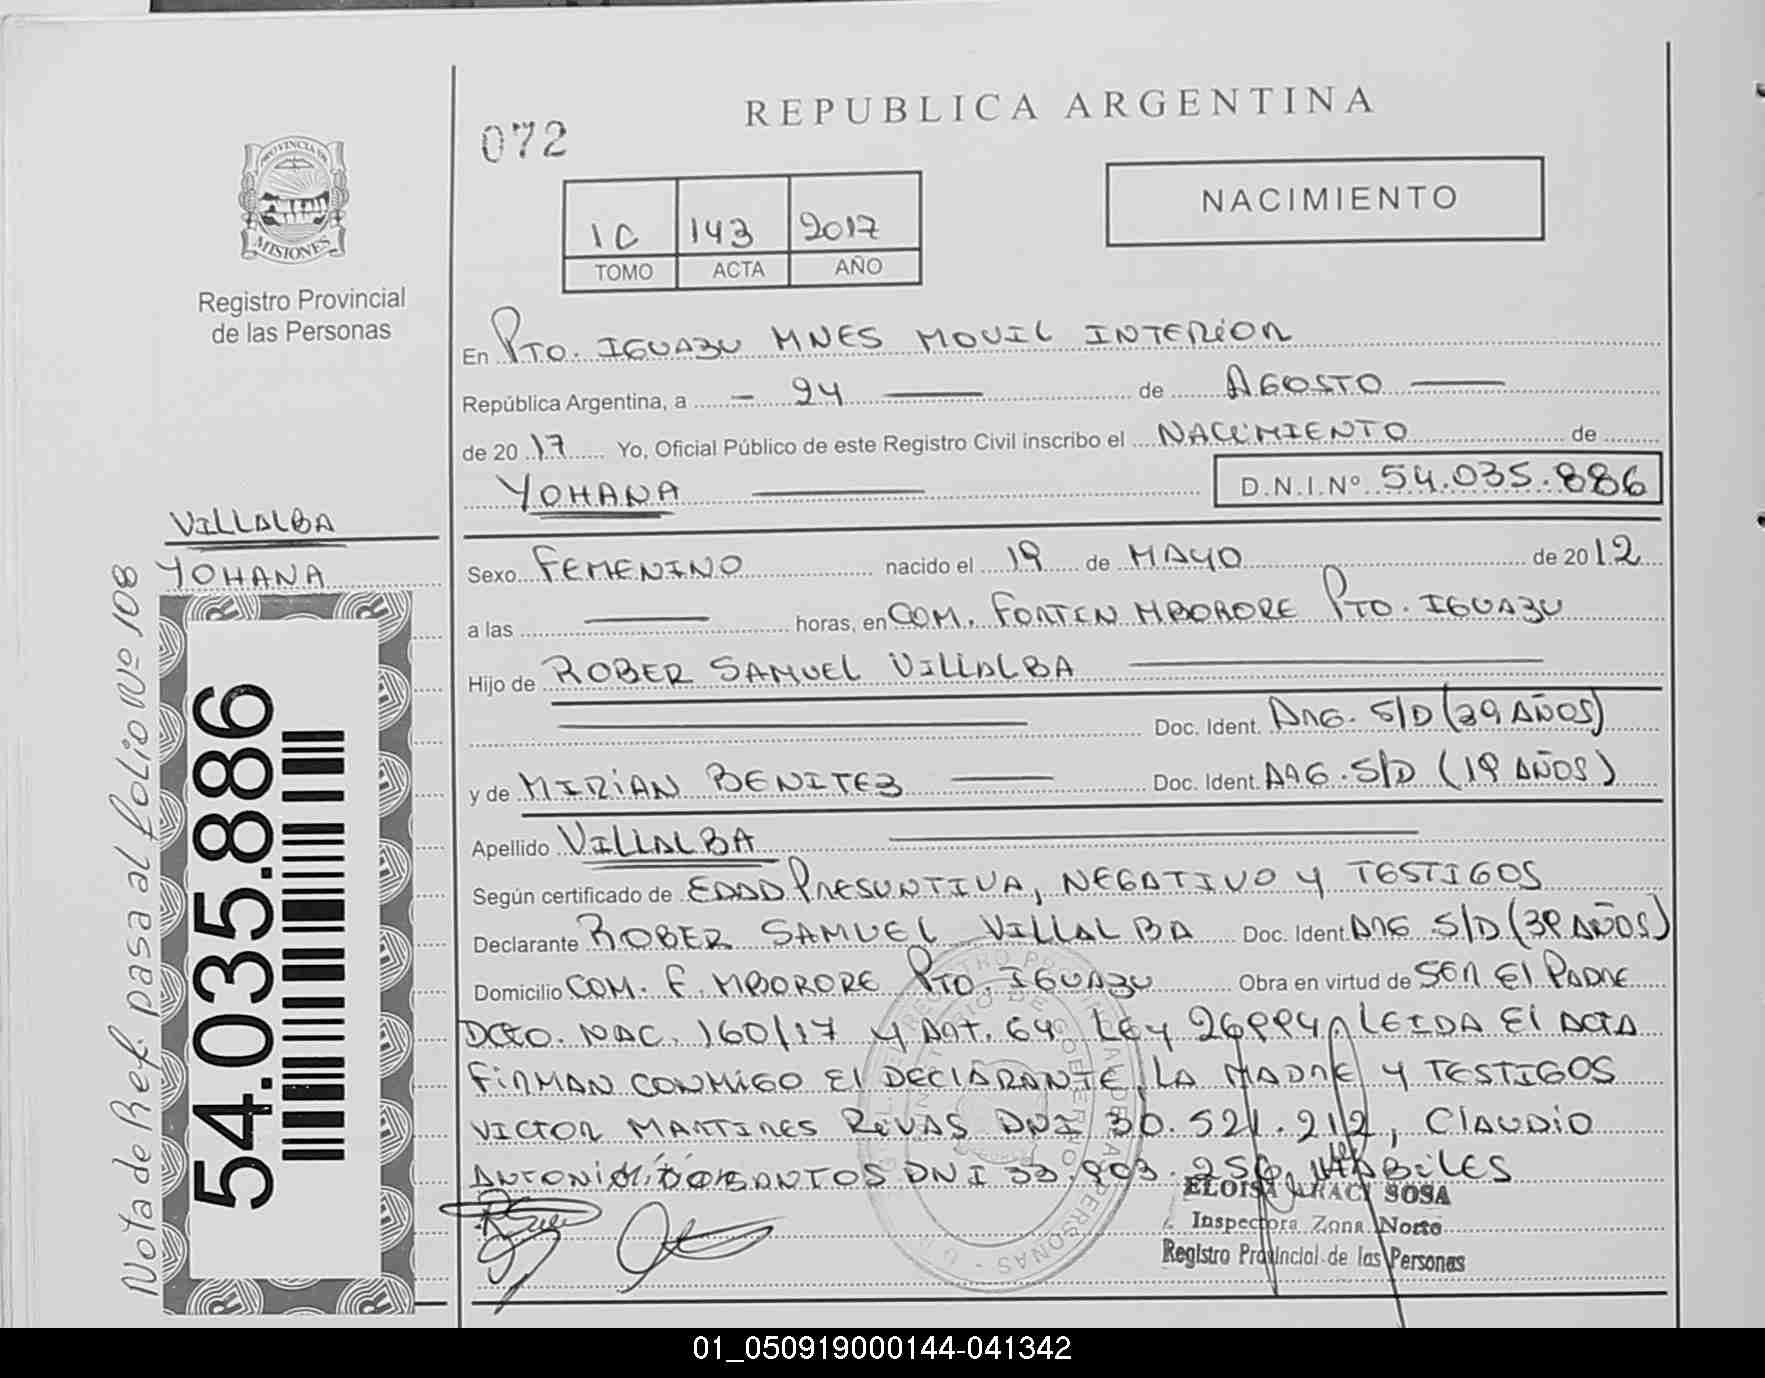 REPUBLICA ARGENTINA
072
NACIMIENTO
1C 143 2017
TOMO ACTA AÑO
PROVINCIA DE
MISIONES
Registro Provincial
de las Personas
En PTO. IGUAZU MNES MOVIL INTERIOR
República Argentina, a - 24 de AGOSTO
de 2017 Yo, Oficial Público de este Registro Civil inscribo el NACIMIENTO de
YOHANA D.N.I.Nº 54.035.886
VILLALBA
YOHANA
Nota de Ref. pasa al folio Nº 108
54.035.886
Sexo FEMENINO nacido el 19 de MAYO de 2012
a las horas, en COM. FORTIN MBORORE PTO. IGUAZU
Hijo de ROBER SAMUEL VILLALBA
Doc. Ident. ARG. S/D (39 AÑOS)
y de MIRIAN BENITEZ Doc. Ident. ARG. S/D (19 AÑOS)
Apellido VILLALBA
Según certificado de EDAD PRESUNTIVA, NEGATIVO Y TESTIGOS
Declarante ROBER SAMUEL VILLALBA Doc. Ident ARG S/D (39 AÑOS)
Domicilio COM. F. MBORORE PTO. IGUAZU Obra en virtud de SER El PADRE
DCTO. NAC. 160/17 Y ART. 64 LEY 26994 LEIDA El ACTA
FIRMAN CONMIGO El DECLARANTE, LA MADRE Y TESTIGOS
VICTOR MARTINES RIVAS DNI 30.521.212, CLAUDIO
DNI 33.903.256 HABILES
ELOISA ARACI SOSA
Inspectora Zona Norte
Registro Provincial de las Personas
01_050919000144-041342